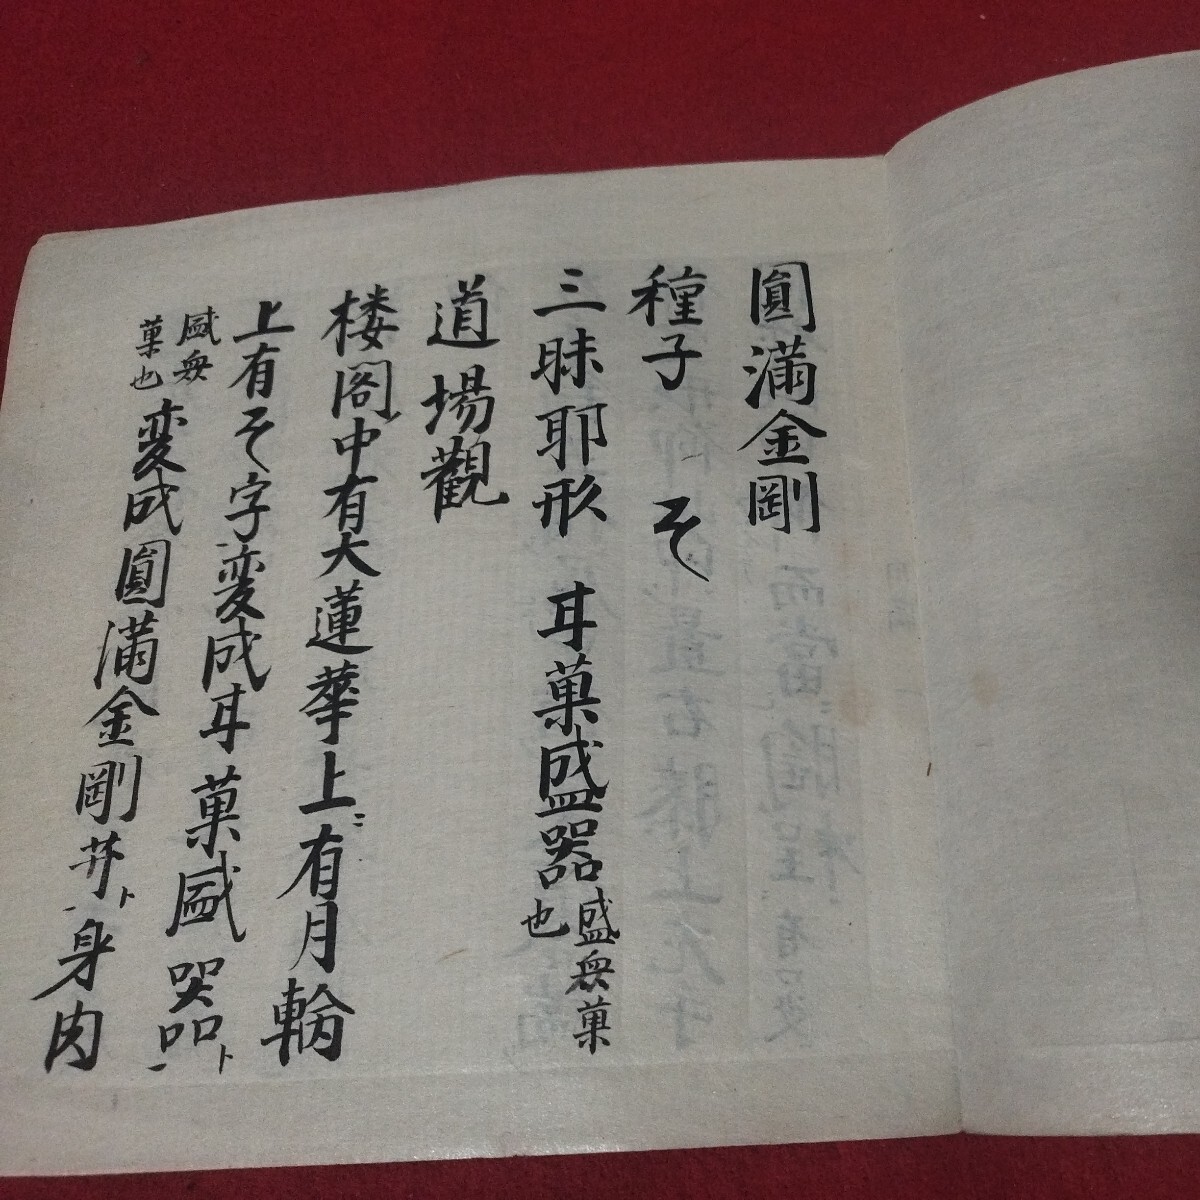 圓滿金剛
種子 そ
三昧耶形 耳菓盛器 盛衆菓也
道場觀
楼閣中有大蓮華上ニ有月輪
上有そ字変成耳菓盛器ト
盛衆菓也 変成圓滿金剛𦬇ト身肉